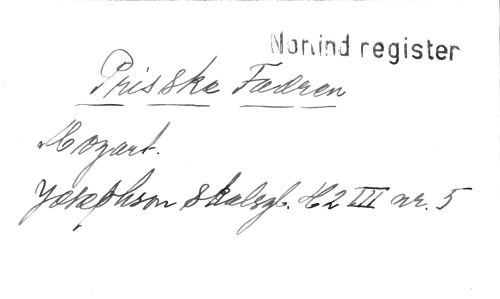 Nonind register
Prisska Fadren
Mozart.
Josephson Skolsgb. H2 III nr. 5